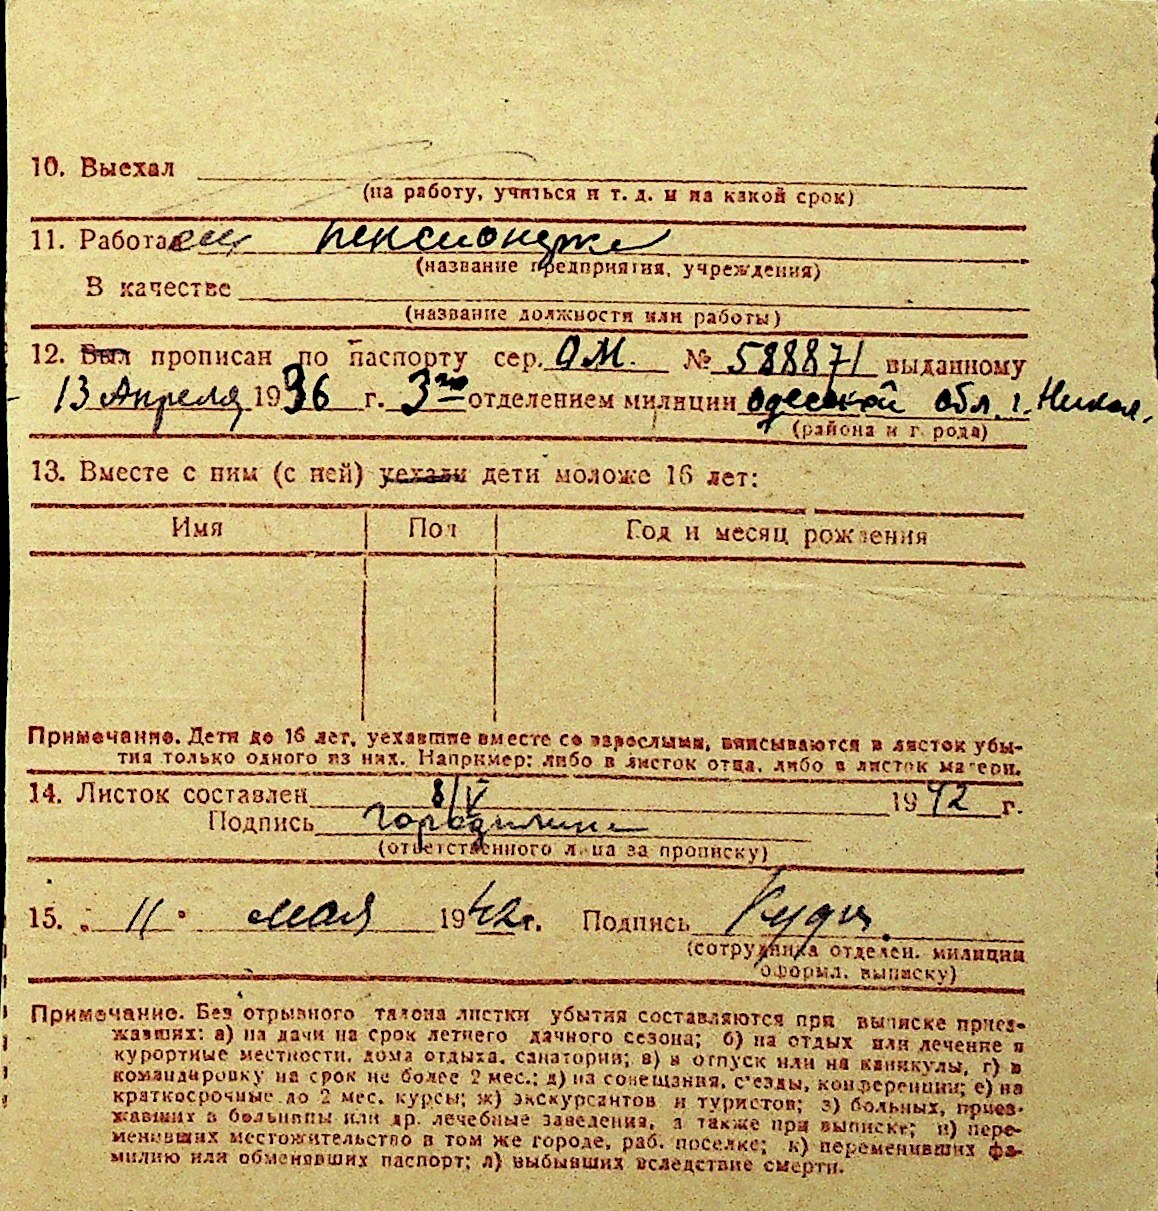 10. Выехал
(на работу, учиться и т. д. и на какой срок)
11. Работа пенсионерка
(название предприятия, учреждения)
В качестве
(название должности или работы)
12. Был прописан по паспорту сер. ОМ. № 588871 выданному
13 Апреля 1936 г. 3им отделением милиции Одесской обл. г. Никол.
(района и города)
13. Вместе с ним (с ней) уехали дети моложе 16 лет:
Имя Пол Год и месяц рождения
Примечание. Дети до 16 лет, уехавшие вместе со взрослыми, вписываются в листок убы-
тия только одного из них. Например: либо в листок отца, либо в листок матери.
14. Листок составлен 8/V 1942 г.
Подпись
(ответственного лица за прописку)
15. „ 11 " мая 1942 г. Подпись
(сотрудника отделен. милиции
оформл. выписку)
Примечание. Без отрывного талона листки убытия составляются при выписке приез-
жавших: а) на дачи на срок летнего дачного сезона; б) на отдых или лечение в
курортные местности, дома отдыха, санатории; в) в отпуск или на каникулы, г) в
командировку на срок не более 2 мес.; д) на совещания, с'езды, конференции; е) на
краткосрочные до 2 мес. курсы; ж) экскурсантов и туристов; з) больных, приез-
жавших в больницы или др. лечебные заведения, а также при выписке; и) пере-
менивших местожительство в том же городе, раб. поселке; к) переменивших фа-
милию или обменявших паспорт; л) выбывших вследствие смерти.